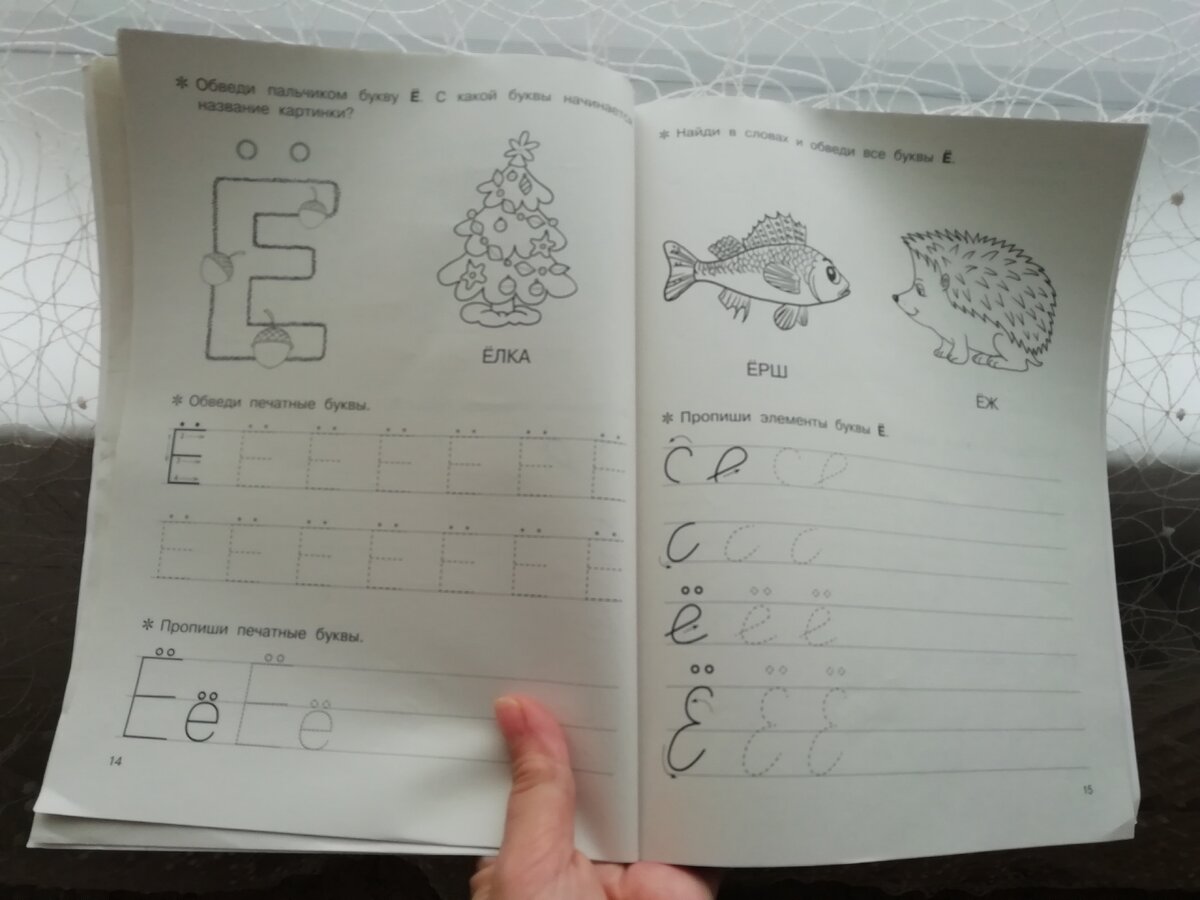 * Обведи пальчиком букву Ё. С какой буквы начинается
название картинки?
Ё
ЁЛКА
* Обведи печатные буквы.
Ё Ё Ё Ё Ё Ё Ё
Ё Ё Ё Ё Ё Ё Ё
* Пропиши печатные буквы.
Ё ё Ё ё
14
* Найди в словах и обведи все буквы Ё.
ЁРШ
ЁЖ
* Пропиши элементы буквы Ё.
ё ё ё
Ё Ё Ё
15